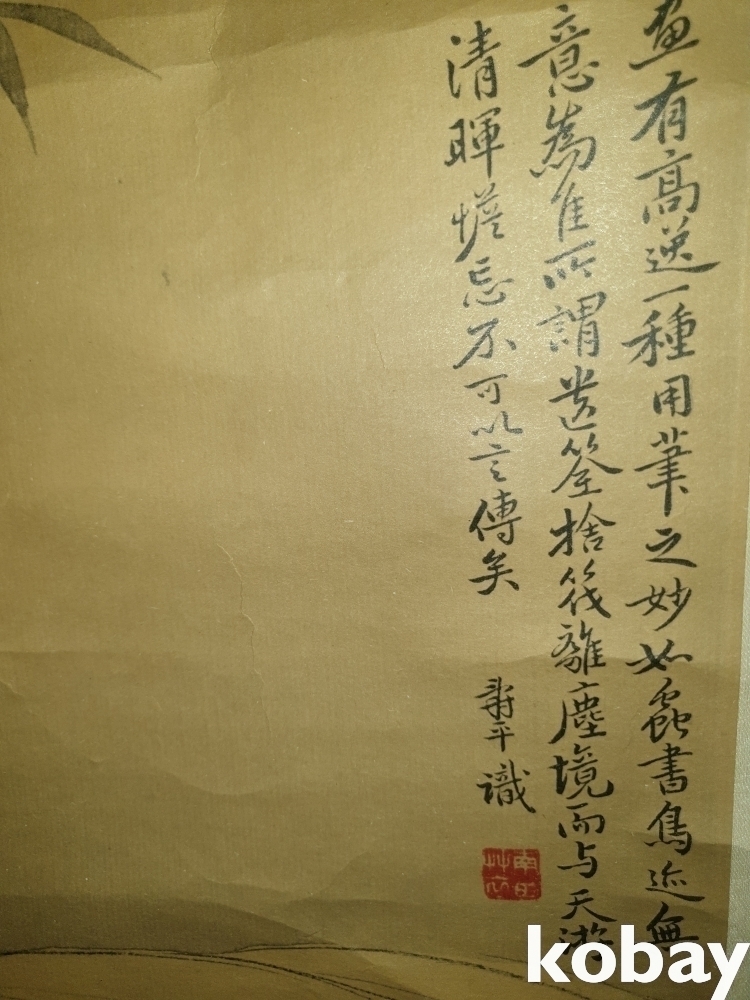 畫有高逸一種用筆之妙如蟲書鳥迹無
意為佳所謂遺筌捨筏離塵境而与天游
清暉憺忘不可以言傳矣
壽平識
南田艸衣
kobay